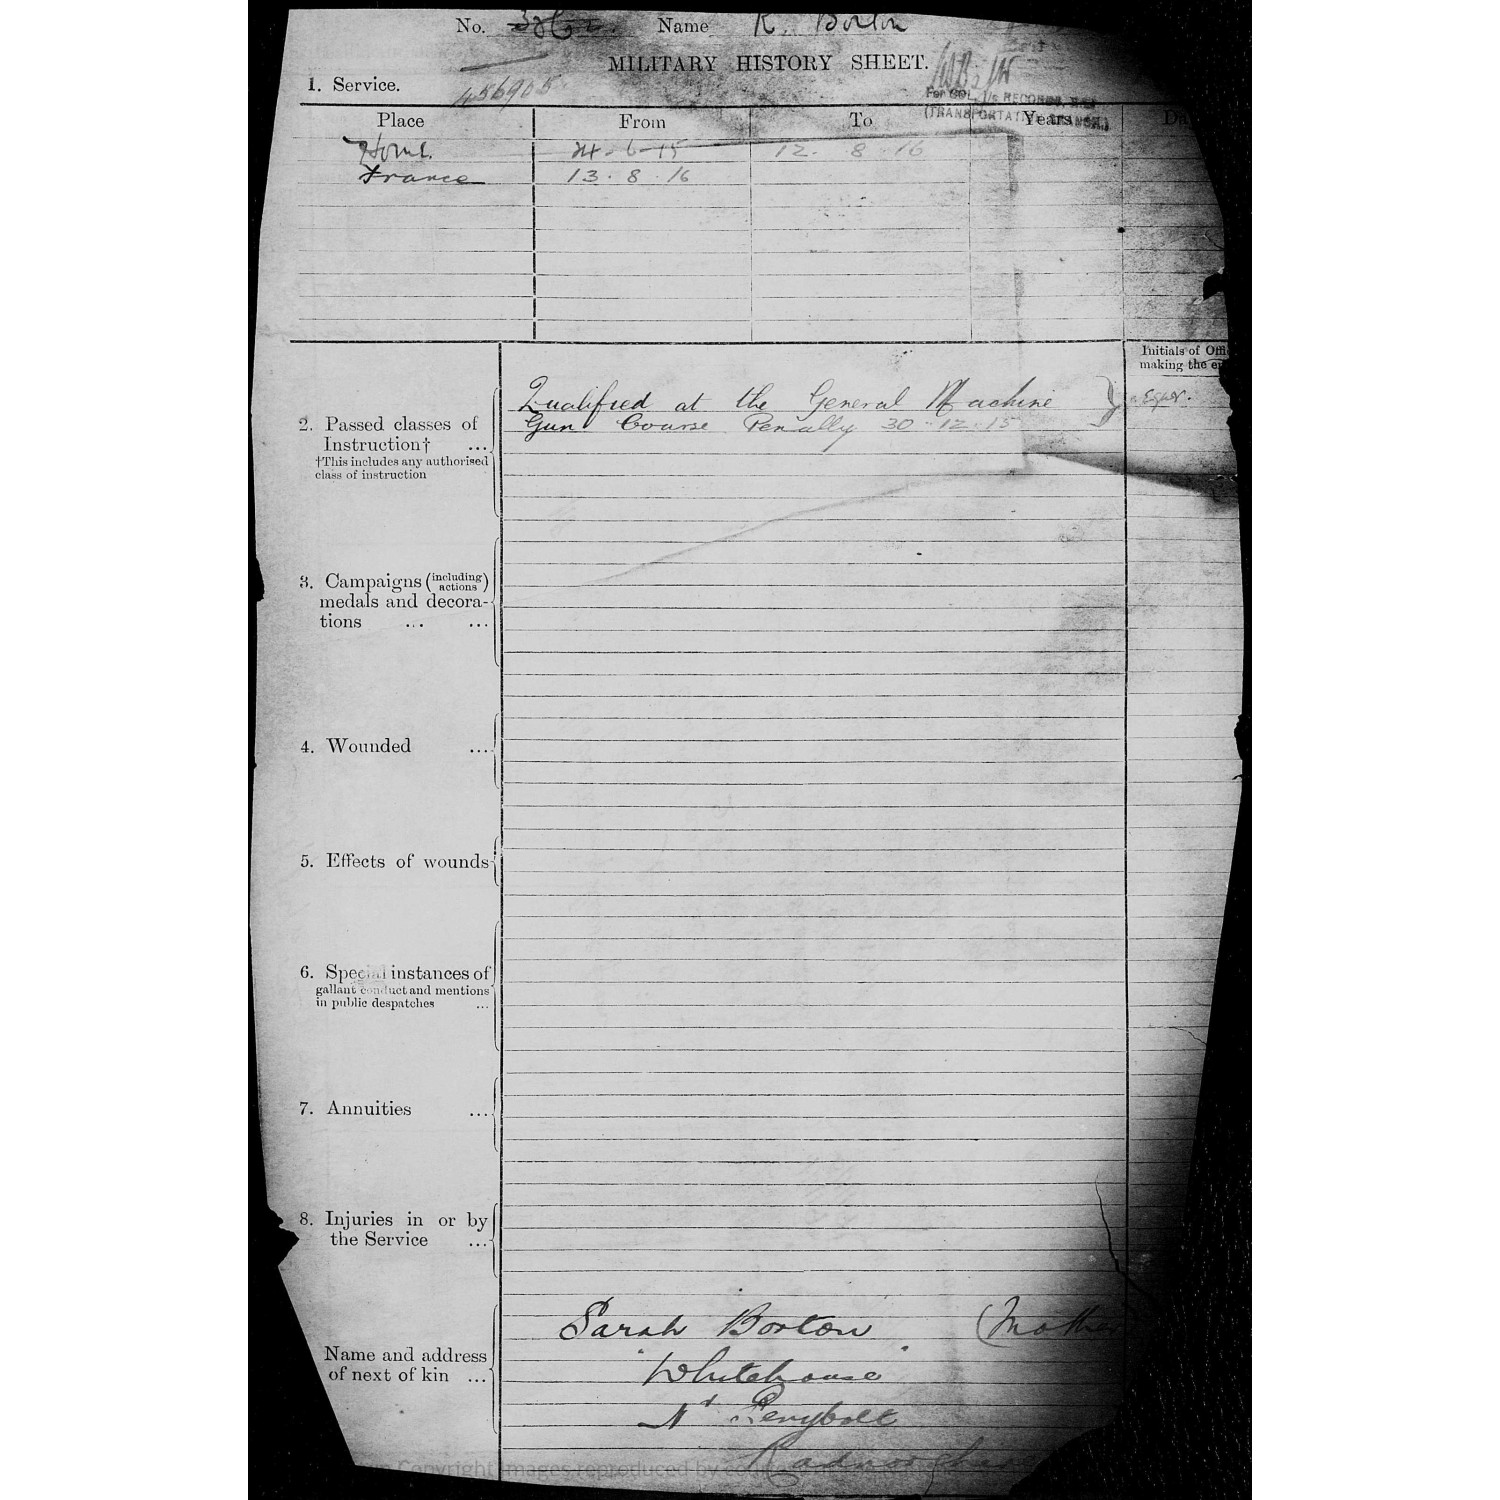 No. Name R. Borton
MILITARY HISTORY SHEET.
1. Service.
456905
For COL. i/c RECORDS, R.E.
(TRANSPORTATION BRANCH.)
Place From To Years Da
Home 24-6-15 12. 8 .16
France 13. 8 .16
Initials of Offi
making the e
Qualified at the General Machine
Gun Course Penally 30-12-15
2. Passed classes of
Instruction† ...
†This includes any authorised
class of instruction
3. Campaigns (including actions)
medals and decora-
tions ... ...
4. Wounded ...
5. Effects of wounds
6. Special instances of
gallant conduct and mentions
in public despatches ...
7. Annuities ...
8. Injuries in or by
the Service ...
Name and address
of next of kin ...
Sarah Borton (Mother
"Whitehouse"
Nr Penybolt
Radnorshire
Copyright images reproduced by courtesy